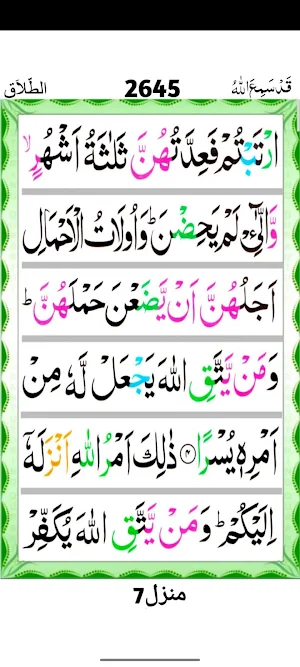 الطَّلَاق 2645 قَدْ سَمِعَ اللّٰهُ
ارْتَبْتُمْ فَعِدَّتُهُنَّ ثَلٰثَةُ اَشْهُرٍ ۙ
وَّالّٰٓـِٔیْ لَمْ یَحِضْنَ ؕ وَاُولَاتُ الْاَحْمَالِ
اَجَلُهُنَّ اَنْ یَّضَعْنَ حَمْلَهُنَّ ؕ
وَمَنْ یَّتَّقِ اللّٰهَ یَجْعَلْ لَّهٗ مِنْ
اَمْرِهٖ یُسْرًا ۝۴ ذٰلِكَ اَمْرُ اللّٰهِ اَنْزَلَهٗۤ
اِلَیْكُمْ ؕ وَمَنْ یَّتَّقِ اللّٰهَ یُكَفِّرْ
منزل7